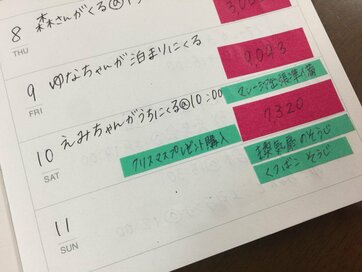 8 森さんがくる@
THU
9 ゆなちゃんが泊まりにくる
FRI
9,043
マレーシア出張準備
10 えみちゃんがうちにくる@10:00
SAT
7,320
クリスマスプレゼント購入
換気扇のそうじ
くつばこ そうじ
11
SUN